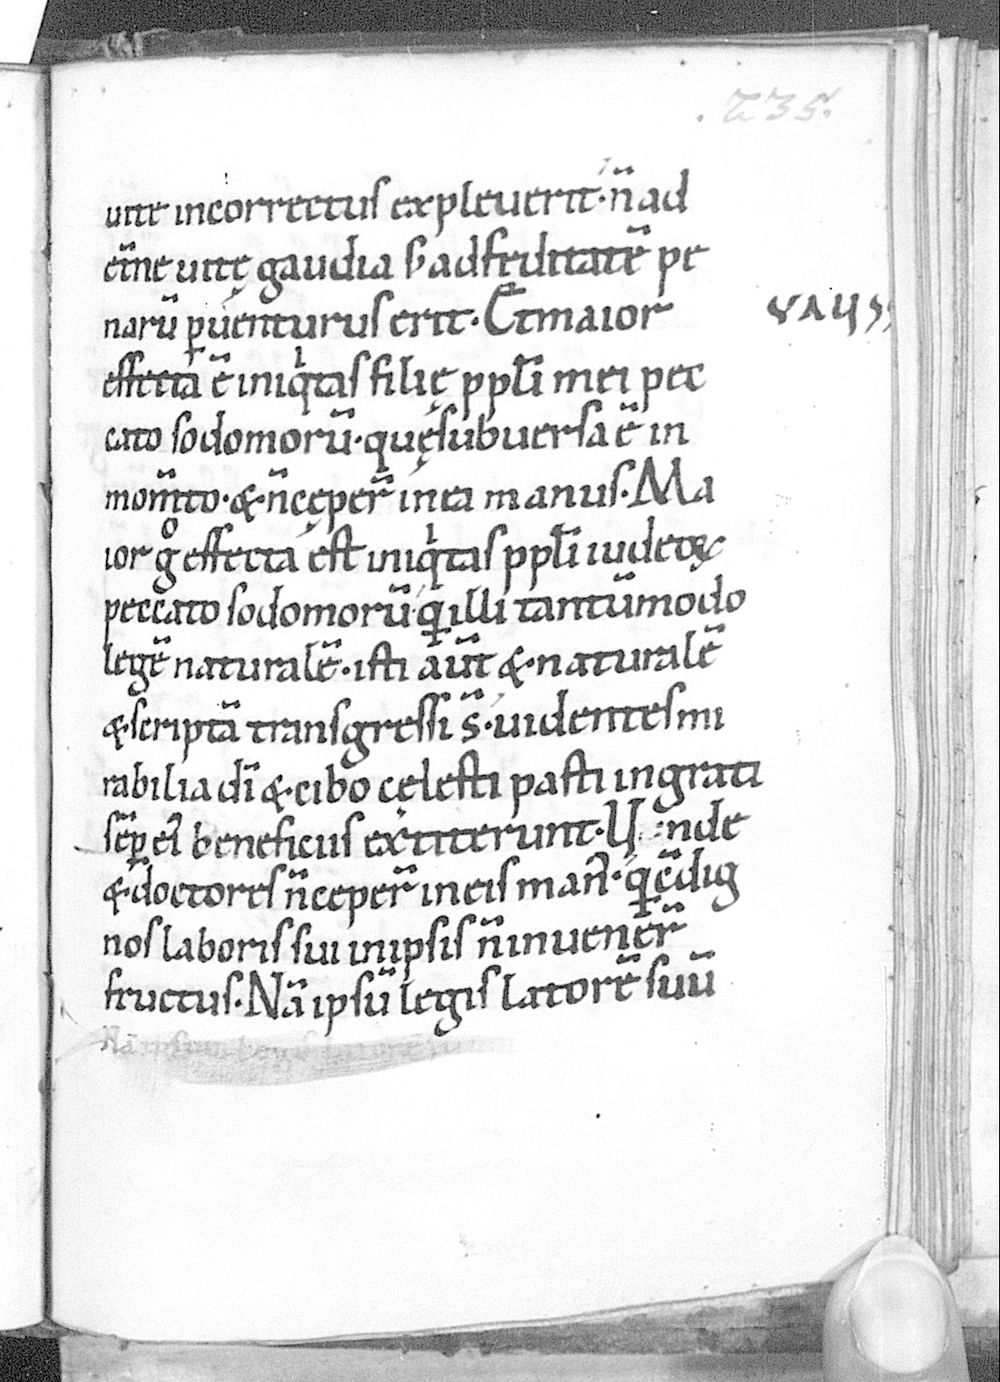 .235.
uite incorrectus expleuerit· n̄ ad
et̄ne uitę gaudia s; ad feditatē pe
narū puenturus erit· Et maior
effecta ē iniq̇tas filię ppl̄i mei pec
cato sodomorū· quę subuersa ē in
mom̄to· & n̄ ceper̄ in ea manus· Ma
ior gͦ effecta est iniq̇tas ppl̄i iudeoꝝ
peccato sodomorū· q̄ illi tantūmodo
legē naturalē· isti aūt & naturalē
& scriptā transgressi s̄· uidentes mi
rabilia dī & cibo celesti pasti ingrati
sēp ei beneficiis extiterunt· Unde
& doctores n̄ ceper̄ in eis man̄· q̄ cōdig
nos laboris sui in ipsis n̄ inuener̄
fructus· Nā ipsū legis latorē suū